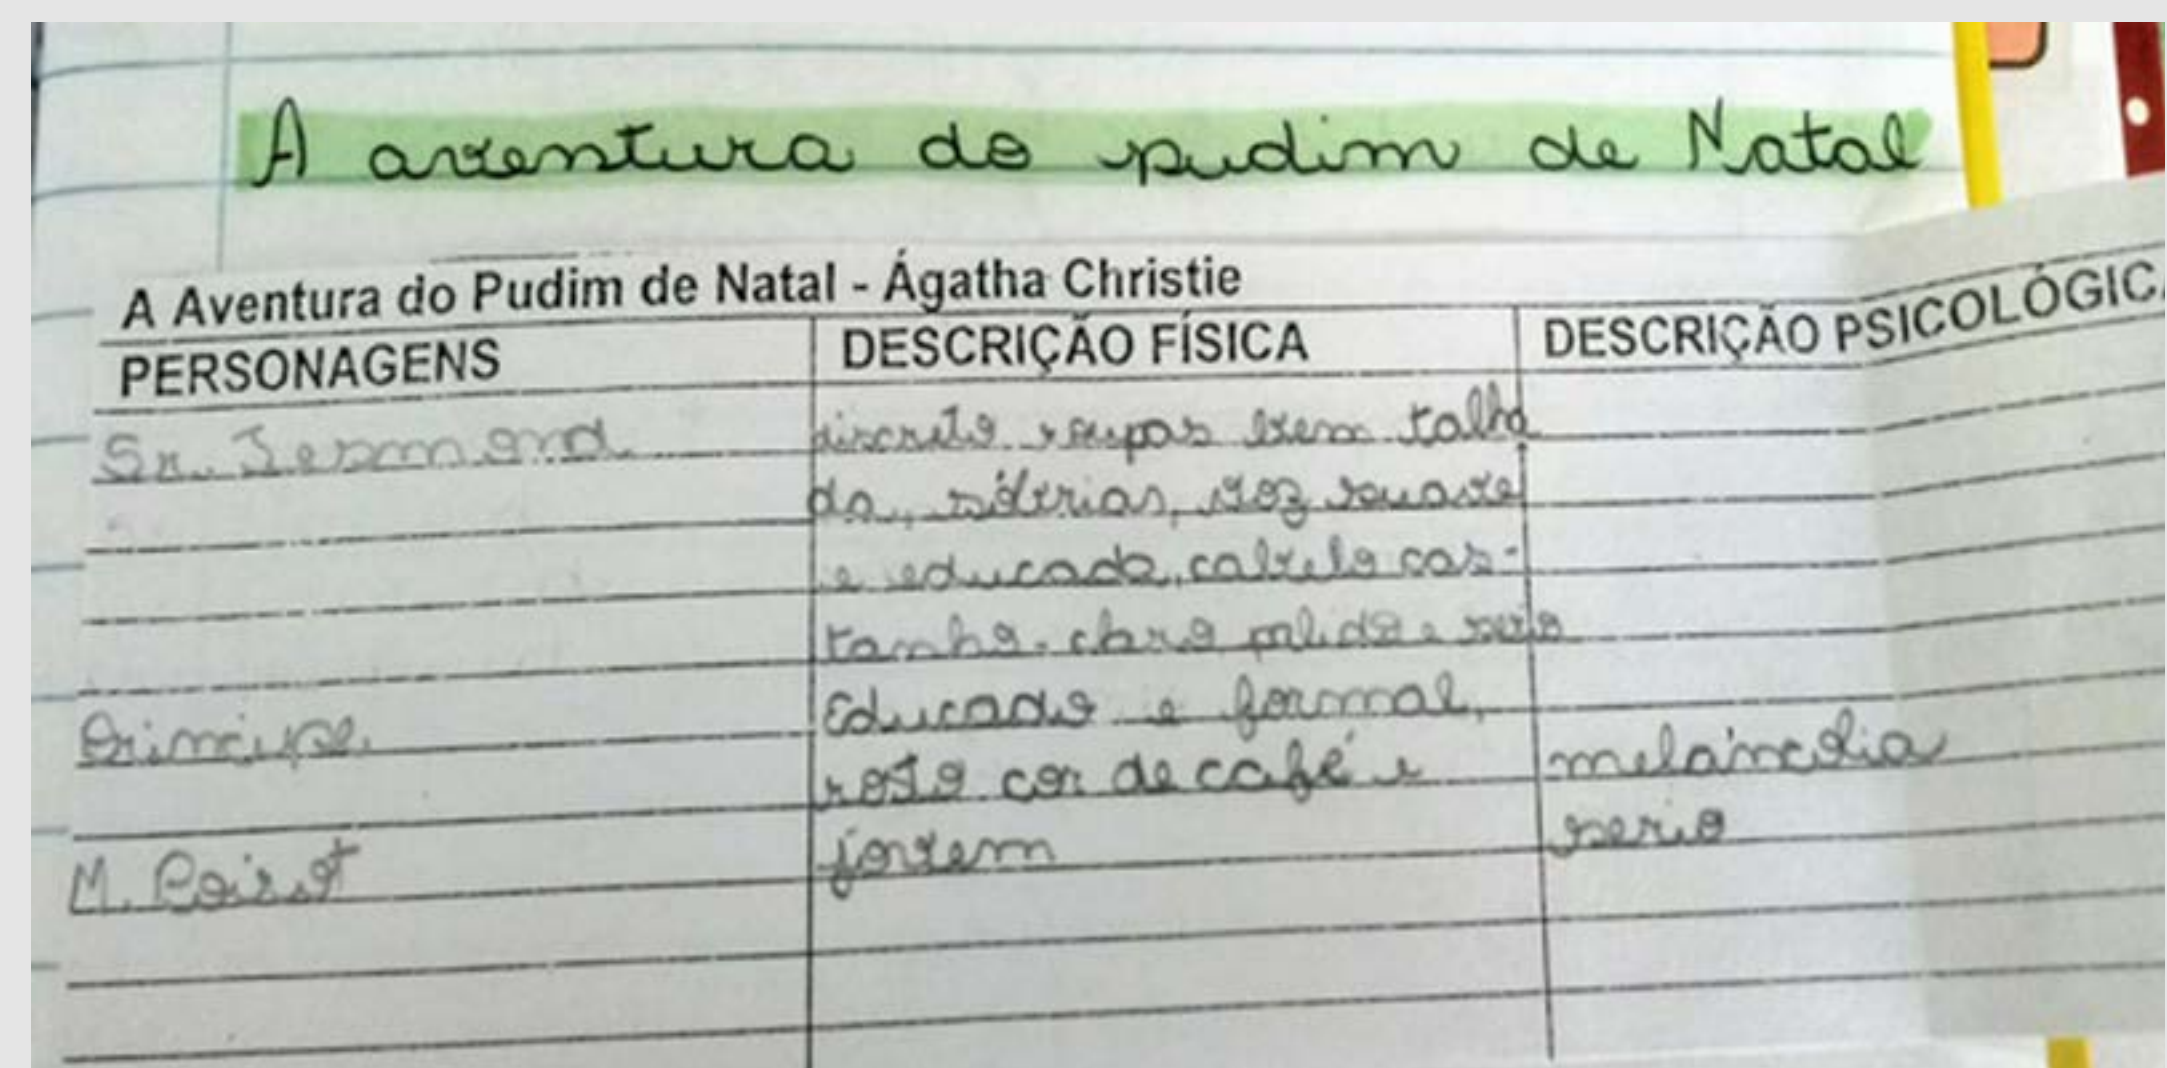 A aventura do pudim de Natal
A Aventura do Pudim de Natal - Ágatha Christie
PERSONAGENS DESCRIÇÃO FÍSICA DESCRIÇÃO PSICOLÓGICA
Sr. Jesmond discreto roupas bem talha
da, sóbrias, voz suave
e educada, cabelo cas-
tanho-claro palido e serio
Educado e formal,
Principe rosto cor de café e melâncolia
M. Poirot jovem serio